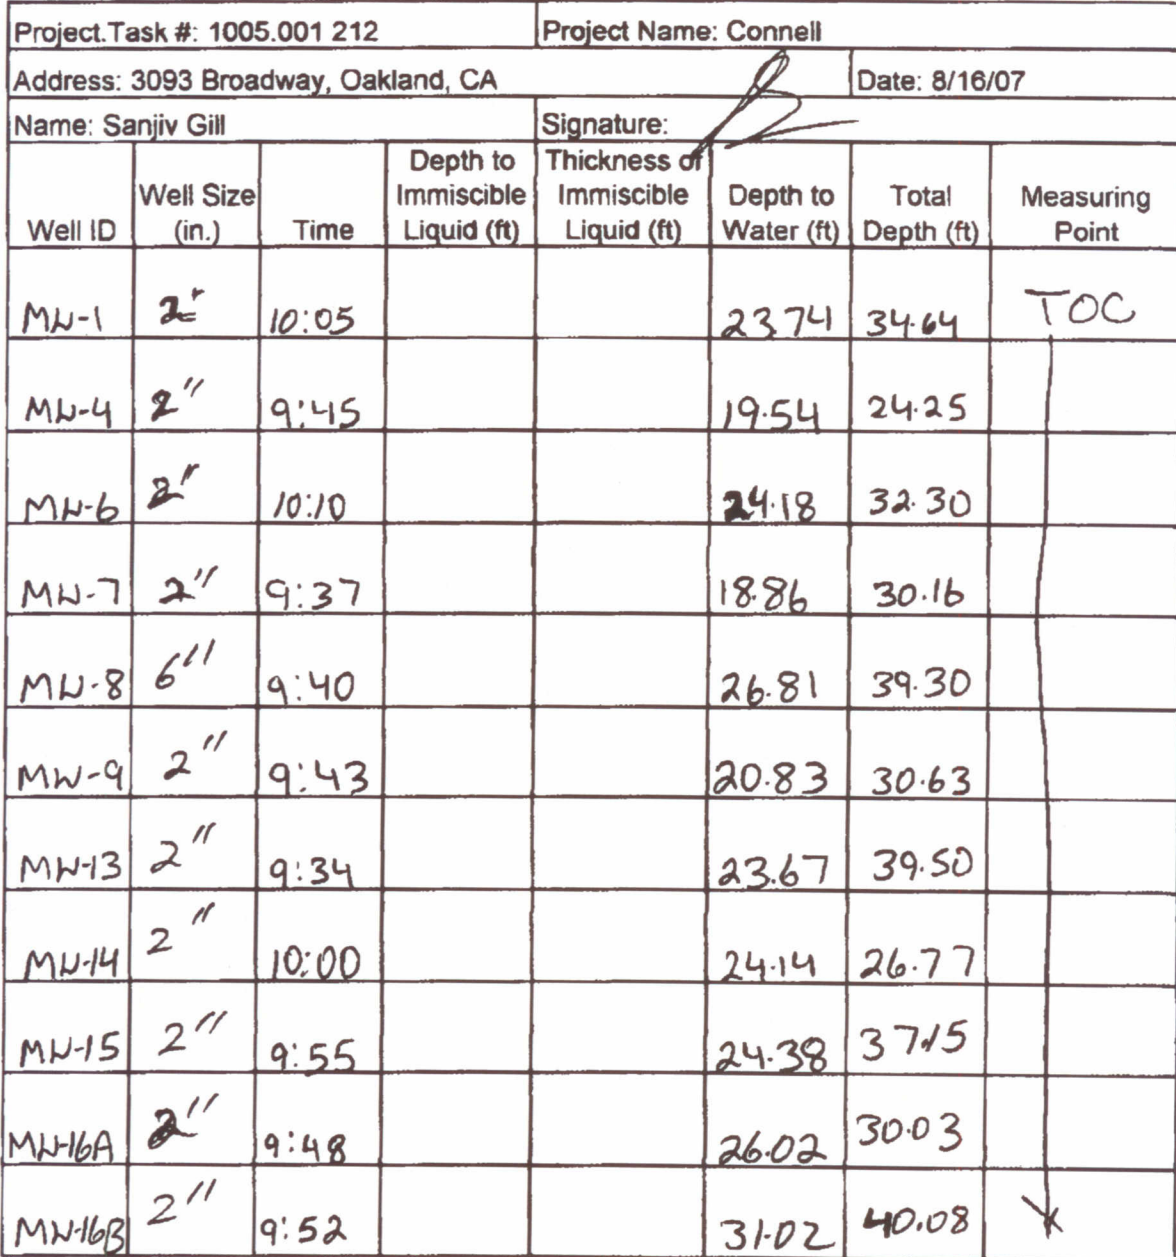 Project.Task #: 1005.001 212 Project Name: Connell
Address: 3093 Broadway, Oakland, CA Date: 8/16/07
Name: Sanjiv Gill Signature:
Well ID Well Size (in.) Time Depth to Immiscible Liquid (ft) Thickness of Immiscible Liquid (ft) Depth to Water (ft) Total Depth (ft) Measuring Point
MW-1 2" 10:05 23.74 34.64 TOC
MW-4 2" 9:45 19.54 24.25
MW-6 2" 10:10 24.18 32.30
MW-7 2" 9:37 18.86 30.16
MW-8 6" 9:40 26.81 39.30
MW-9 2" 9:43 20.83 30.63
MW-13 2" 9:34 23.67 39.50
MW-14 2" 10:00 24.14 26.77
MW-15 2" 9:55 24.38 37.15
MW-16A 2" 9:48 26.02 30.03
MW-16B 2" 9:52 31.02 40.08